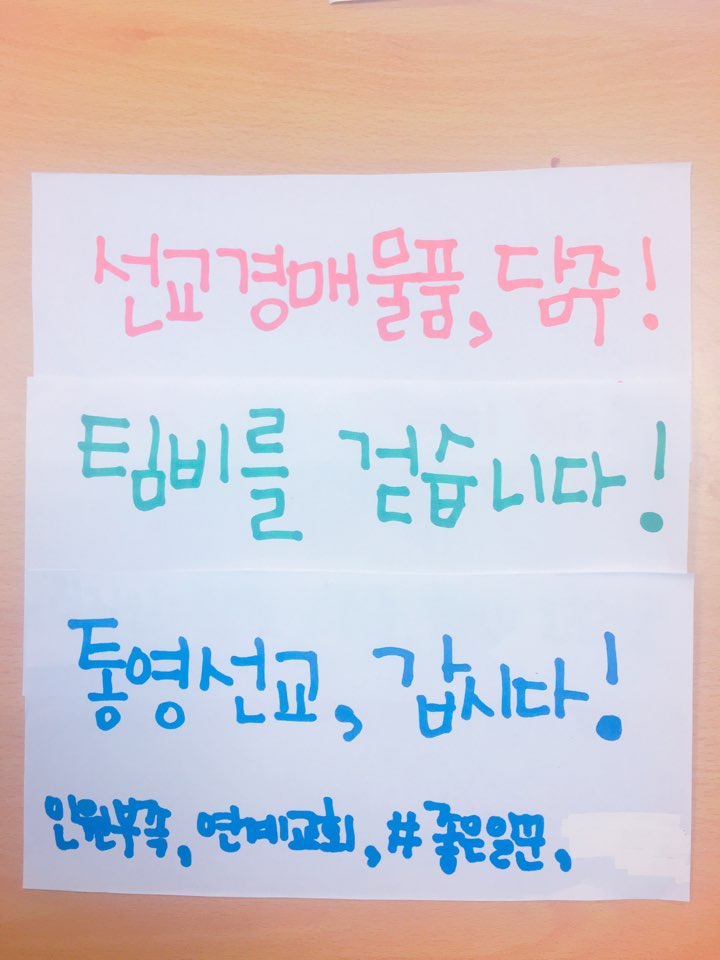 선교경매물품, 담주!
팀비를 걷습니다!
통영선교, 갑시다!
인원부족, 연계교회, #좋은일꾼,